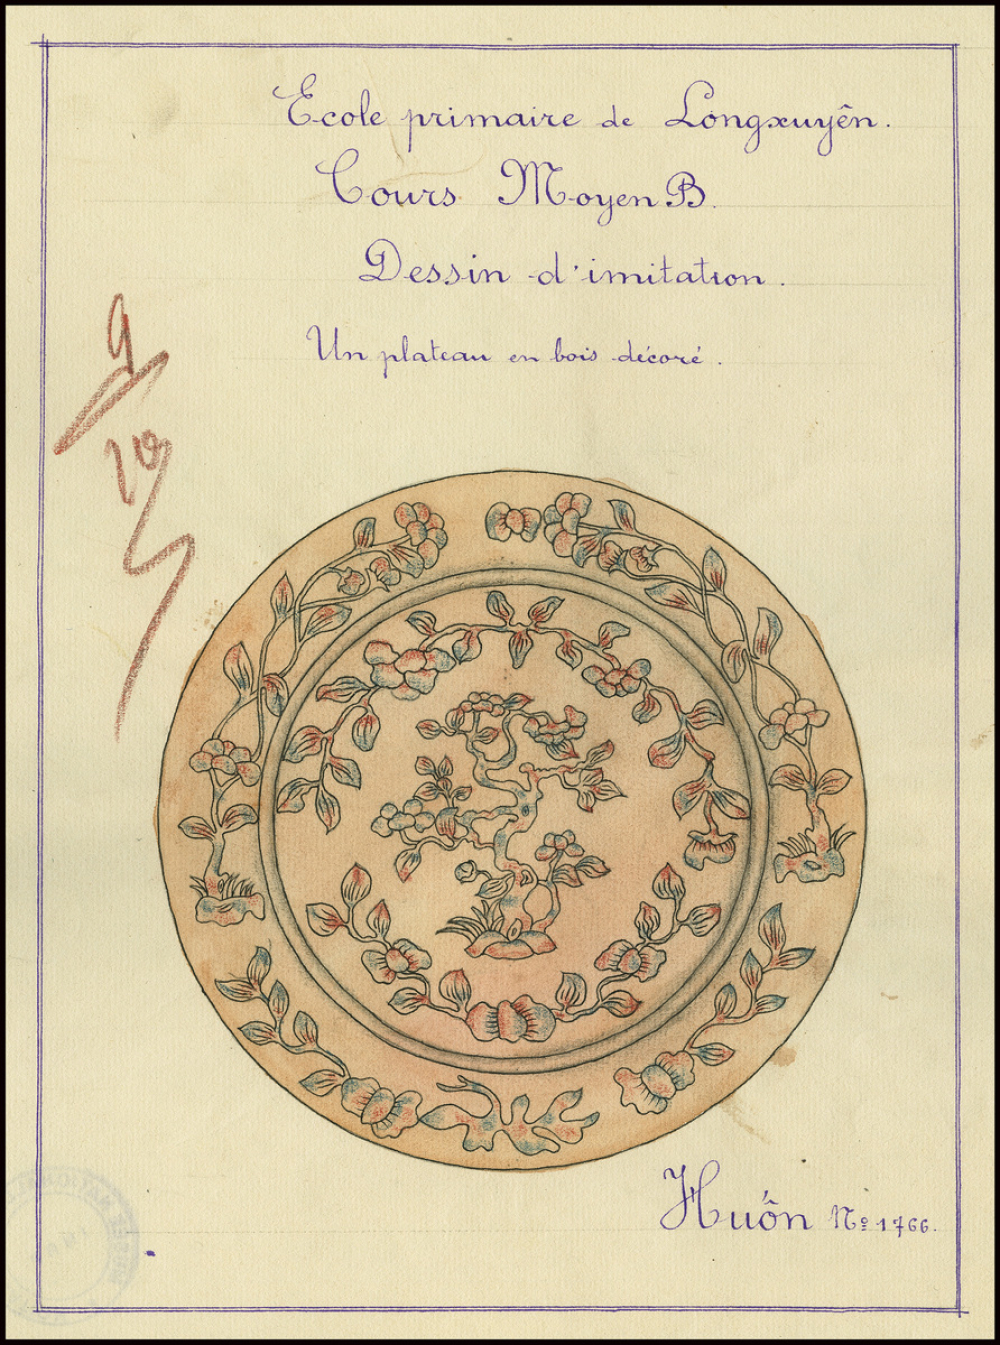 Ecole primaire de Longxuyên.
Cours Moyen B.
Dessin d'imitation.
Un plateau en bois décoré.
9
20
Huôn Nº 1766.